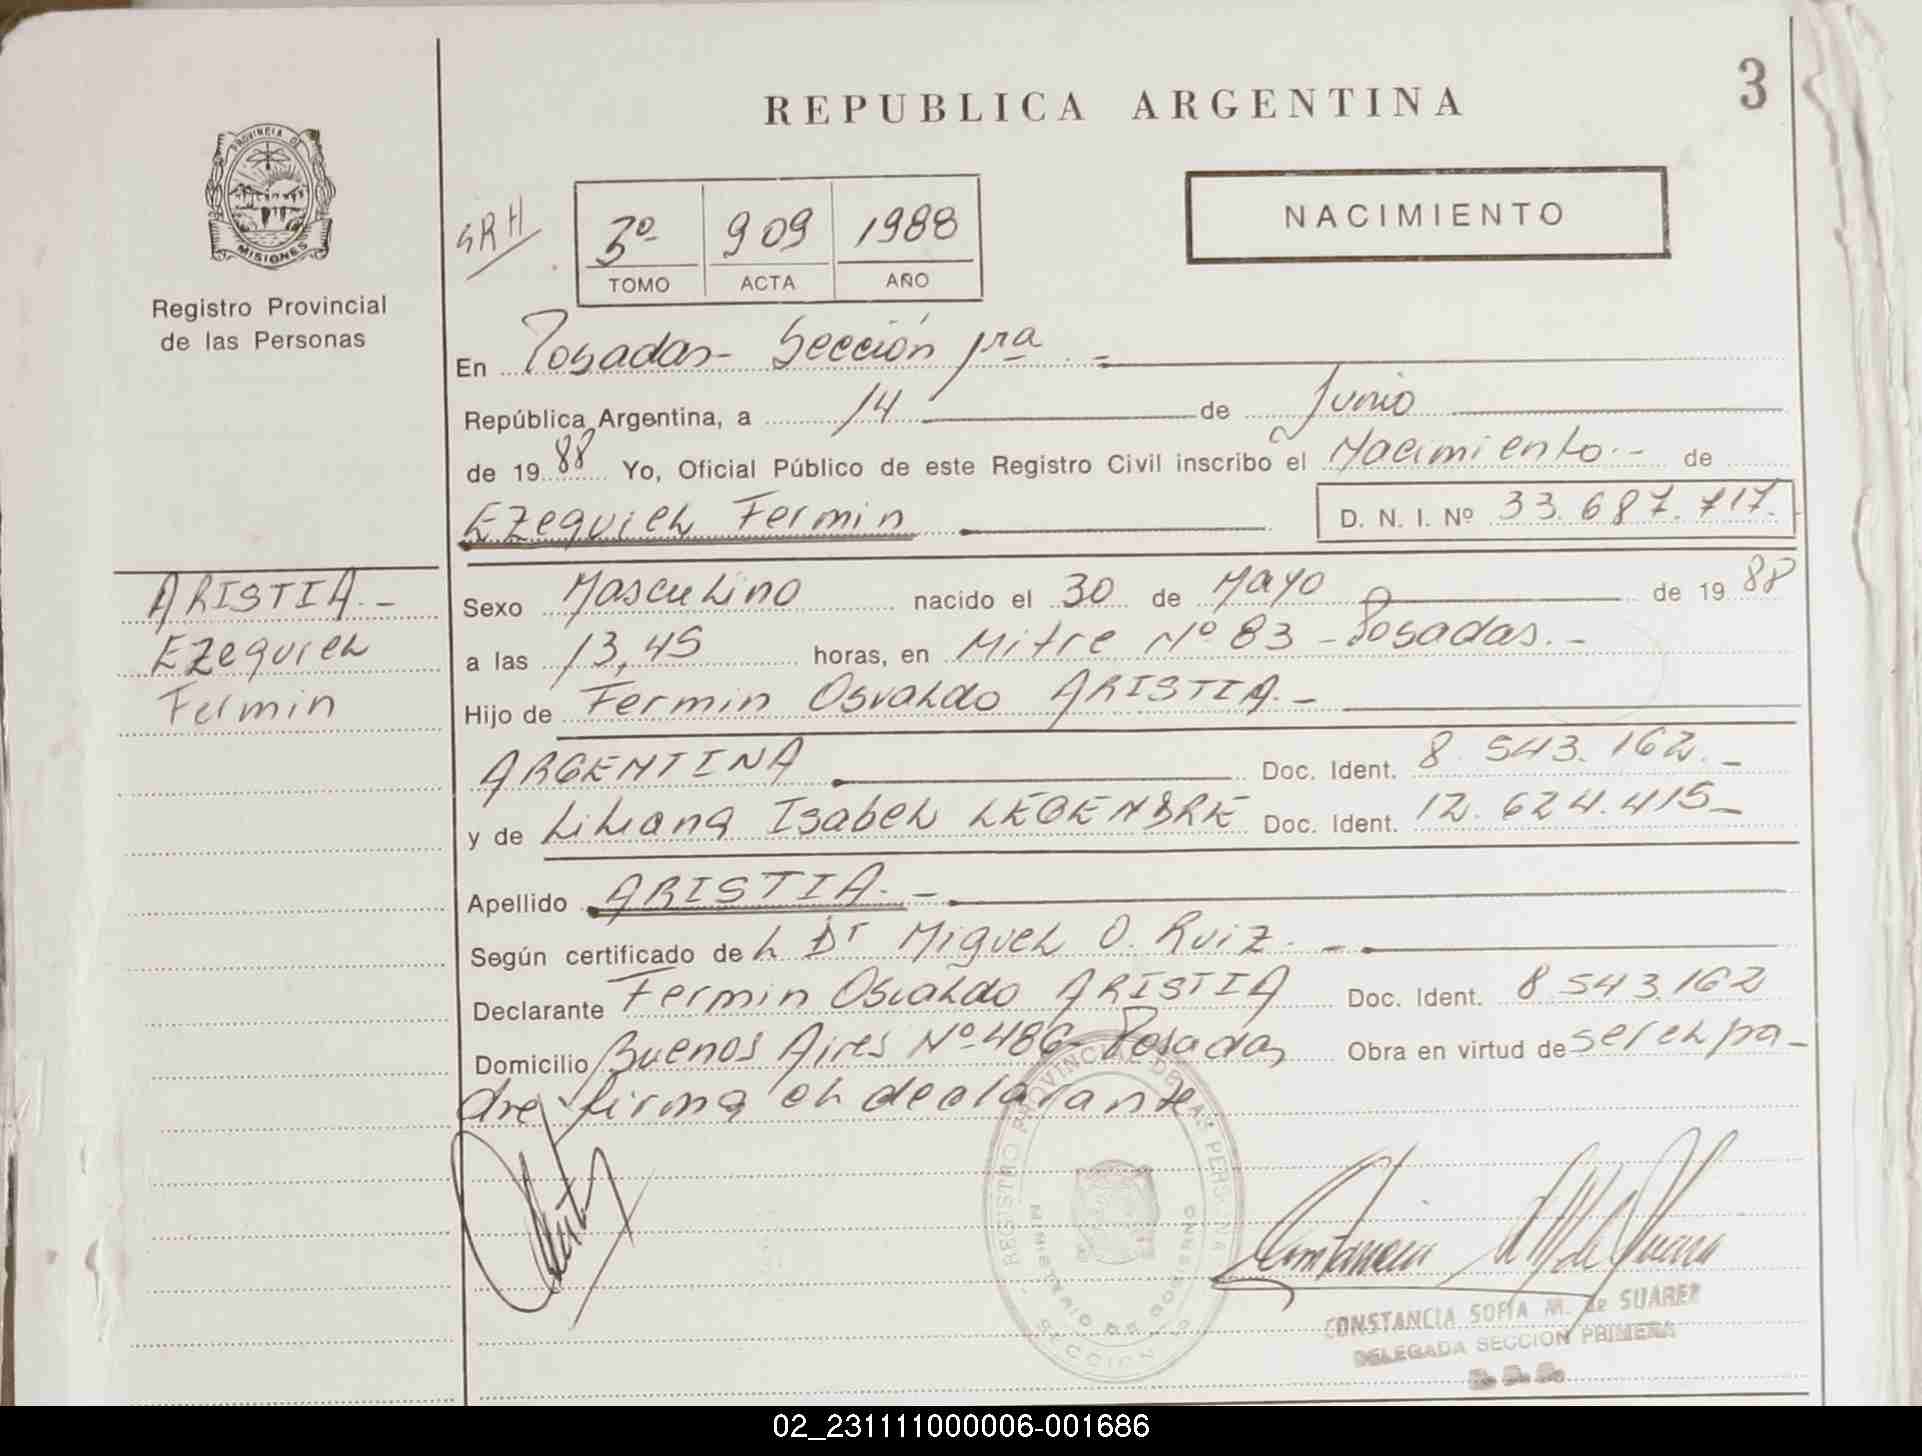 REPUBLICA ARGENTINA
3
PROVINCIA DE
MISIONES
Registro Provincial
de las Personas
SRH
3º 909 1988
TOMO ACTA AÑO
NACIMIENTO
En Posadas- Sección 1ra.-
República Argentina, a 14 de Junio
de 19 88 Yo, Oficial Público de este Registro Civil inscribo el Nacimiento.- de
Ezequiel Fermin D. N. I. Nº 33.687.717.
ARISTIA.-
Ezequiel
Fermin
Sexo Masculino nacido el 30 de Mayo de 19 88
a las 13,45 horas, en Mitre Nº 83 - Posadas.-
Hijo de Fermin Osvaldo ARISTIA.-
ARGENTINA Doc. Ident. 8.543.162.-
y de Liliana Isabel LEGENDRE Doc. Ident. 12.624.415-
Apellido ARISTIA.-
Según certificado de l Dr Miguel O. Ruiz.-
Declarante Fermin Osvaldo ARISTIA Doc. Ident. 8.543.162
Domicilio Buenos Aires Nº 486- Posadas Obra en virtud de ser el pa-
dre firma el declarante
REGISTRO PROVINCIAL DE LAS PERSONAS
MINISTERIO DE GOBIERNO
SECCION
CONSTANCIA SOFIA M. de SUAREZ
DELEGADA SECCION PRIMERA
02_231111000006-001686